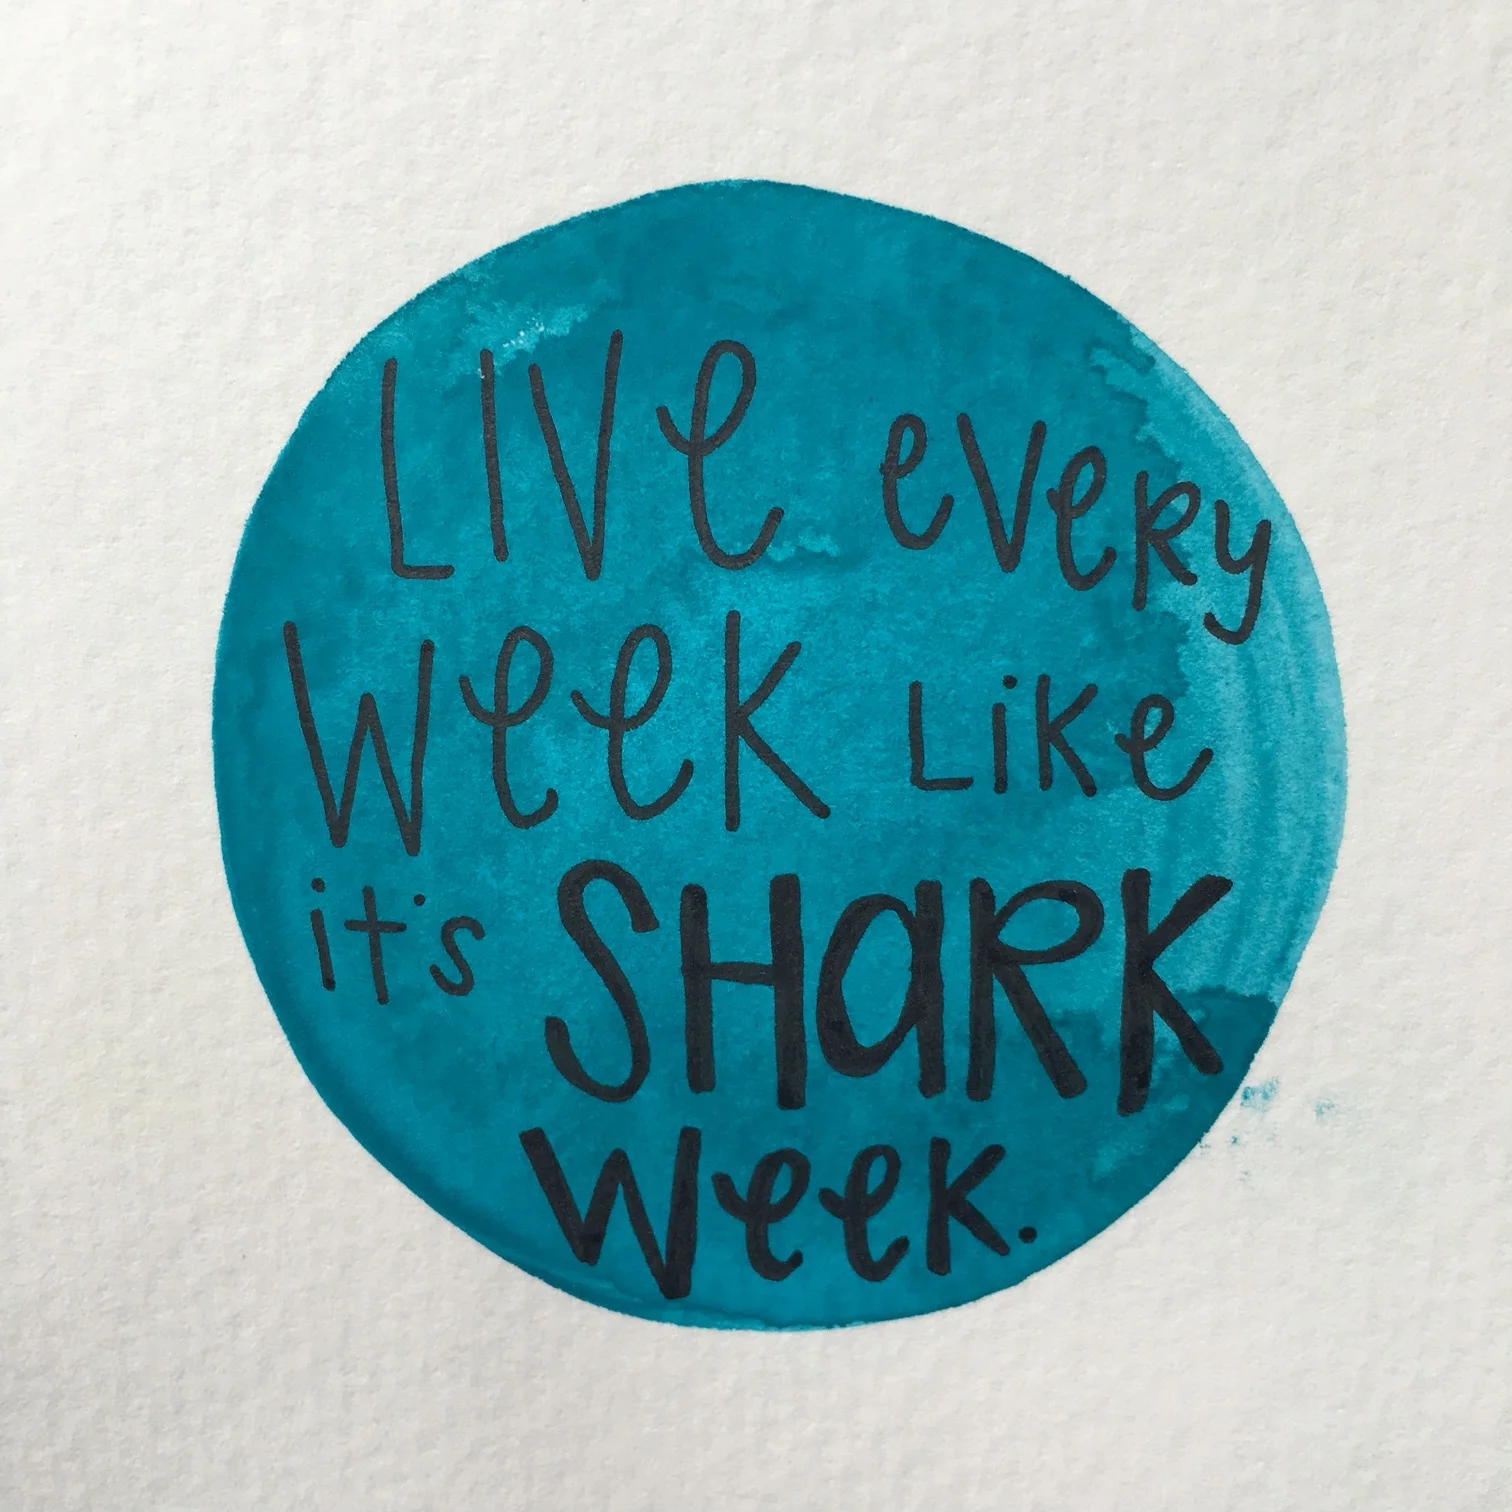 LIVe eVeRy
Week LiKe
it's SHaRK
Week.